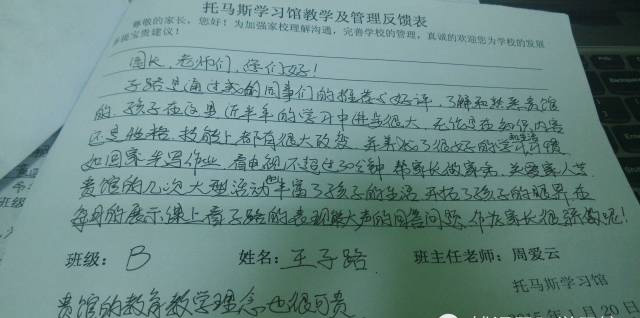 托马斯学习馆教学及管理反馈表
尊敬的家长，您好！为加强家校理解沟通，完善学校的管理，真诚的欢迎您为学校的发展
宝贵建议！
园长，老师们，您们好！
子路是通过我的同事们的推荐与好评，了解和熟悉贵馆
的，孩子在这里近半年的学习中进步很大，无论是在知识内容
还是性格，技能上都有很大改变，并养成了很好的学习习惯
如回家先写作业，看电视不超过30分钟，帮家长做家务，关爱家人等
贵馆的几次大型活动丰富了孩子的生活，开拓了孩子的眼界，在
每月的展示课上看子路的表现，大声的回答问题，作为家长很骄傲呢！
班级：B 姓名：王子路 班主任老师：周爱云
托马斯学习馆
月20日
贵馆的教育教学理念也很可贵
班级